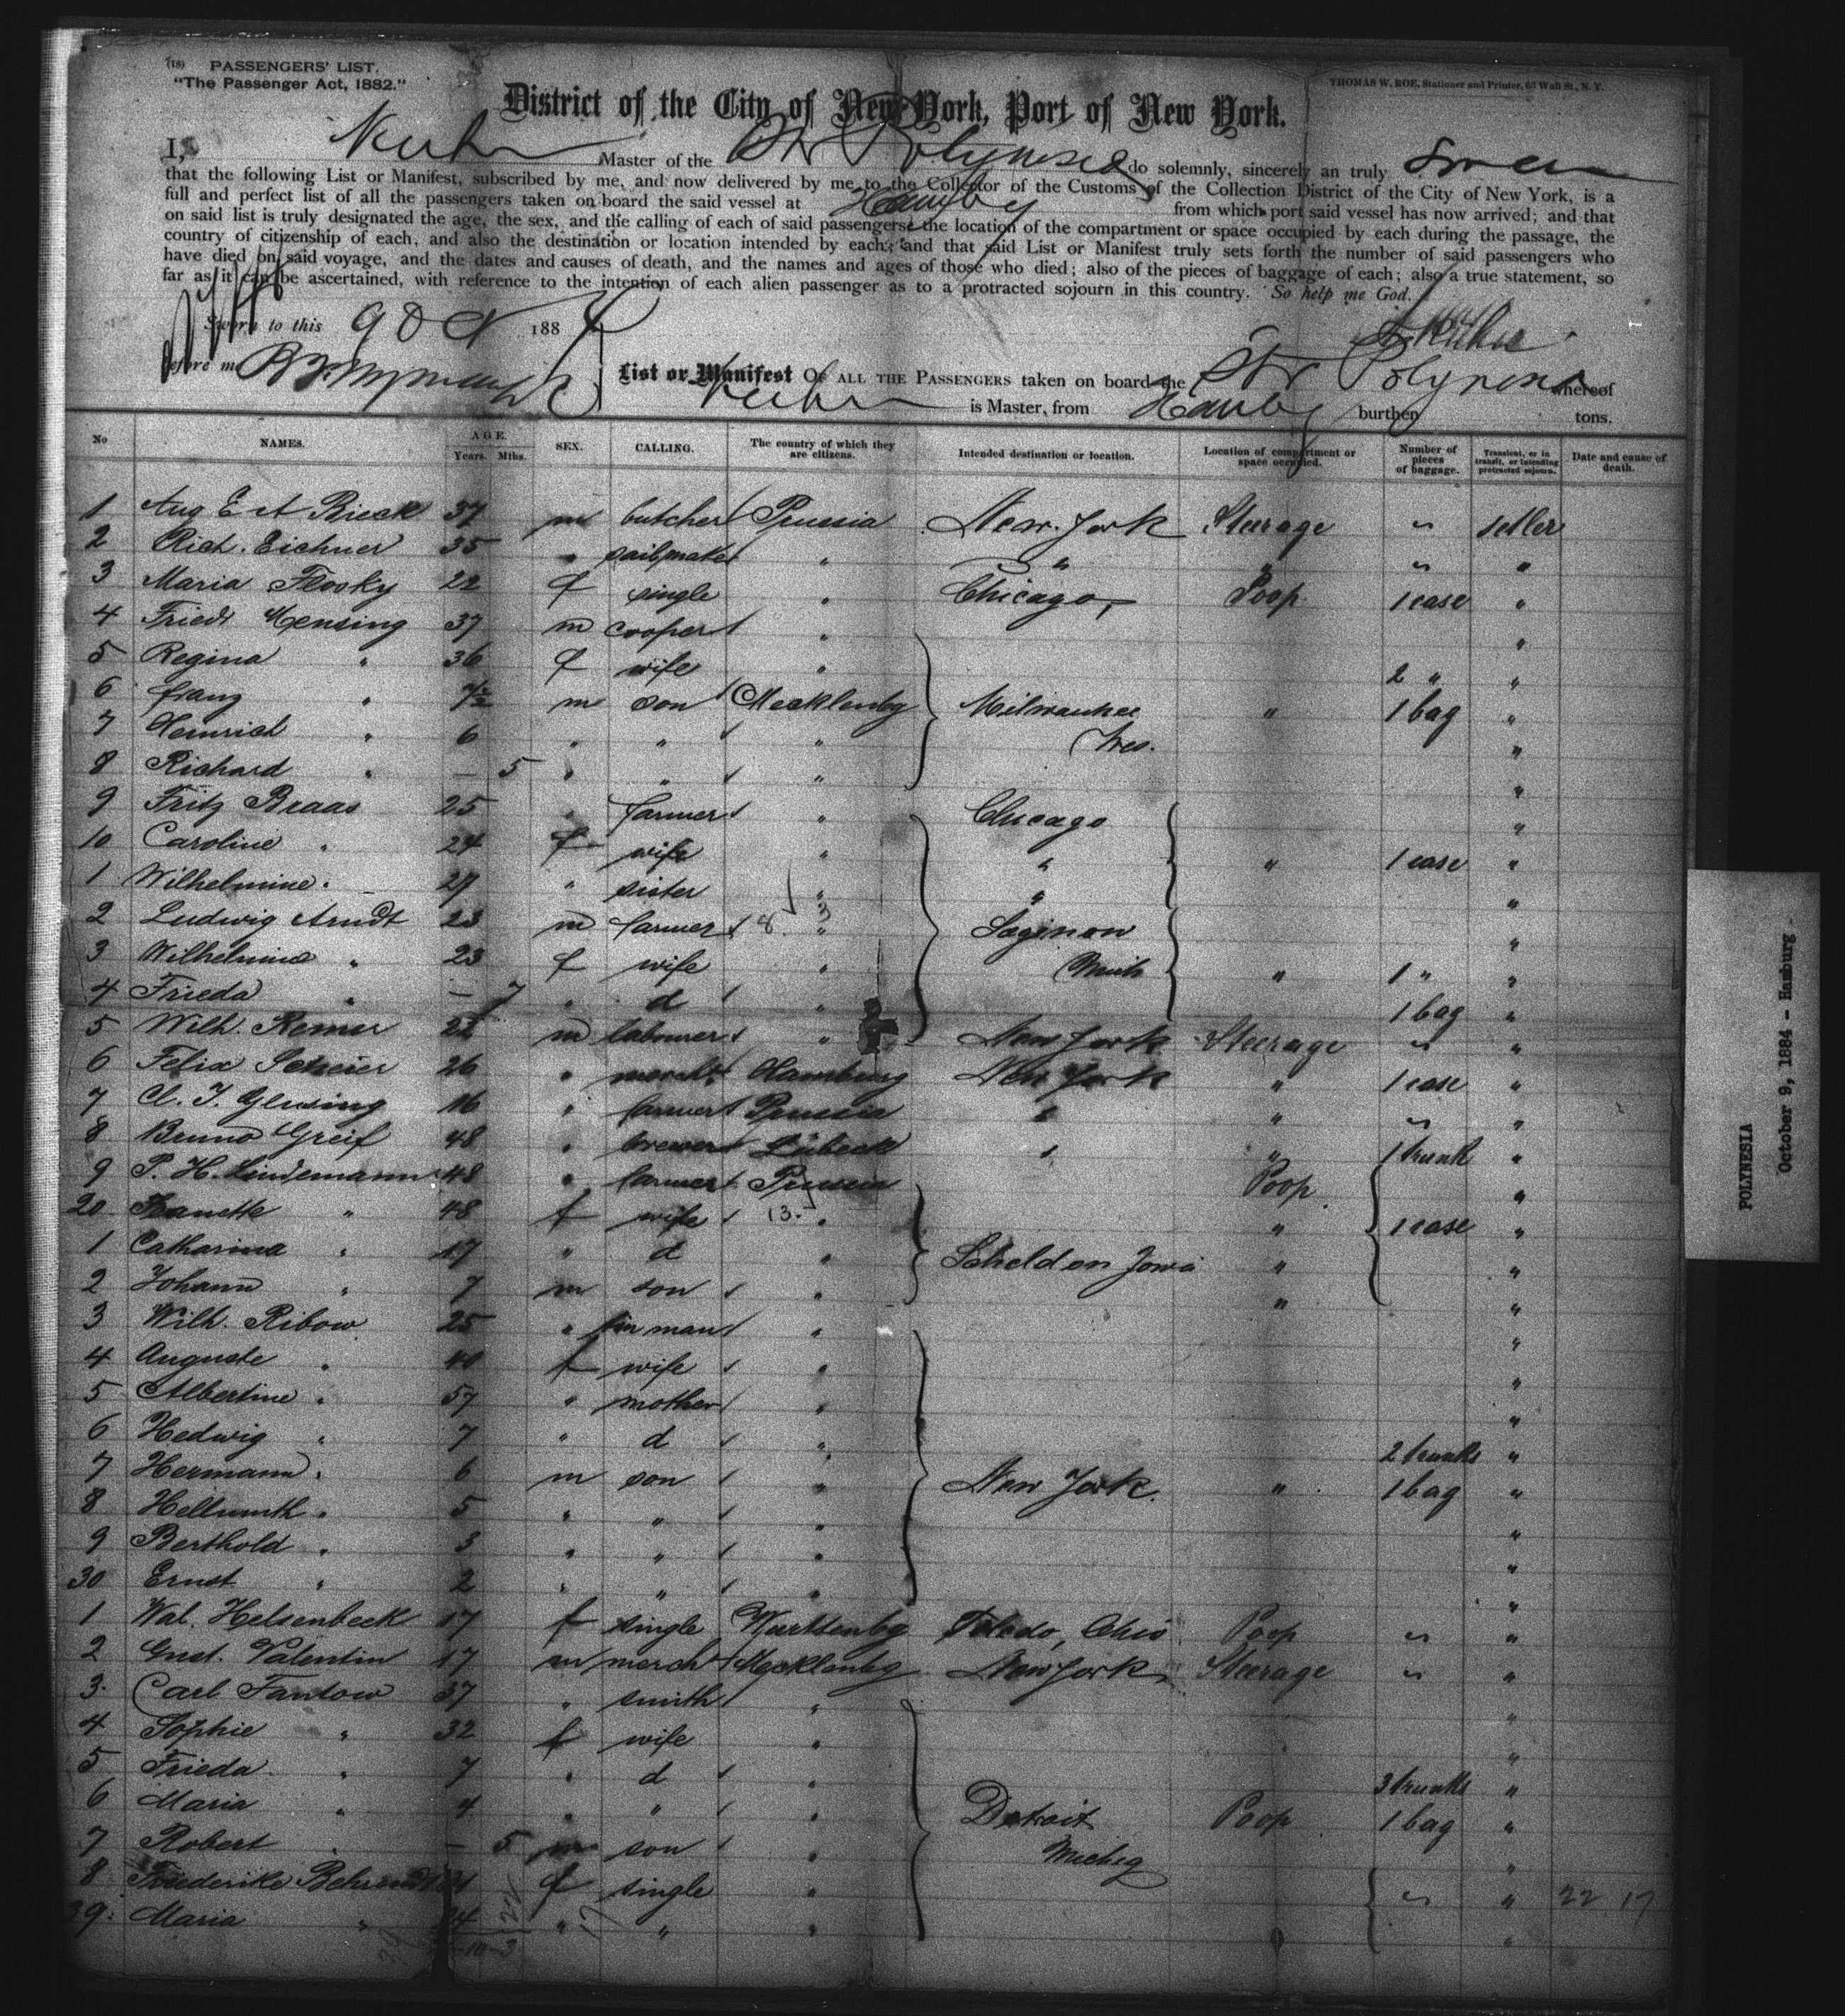 (18) PASSENGERS' LIST.
"The Passenger Act, 1882."
THOMAS W. ROE, Stationer and Printer, 65 Wall St., N. Y.
District of the City of New York, Port of New York.
I, Kuhn Master of the Str Polynesia do solemnly, sincerely an truly swear
that the following List or Manifest, subscribed by me, and now delivered by me to the Collector of the Customs of the Collection District of the City of New York, is a
full and perfect list of all the passengers taken on board the said vessel at Hamby from which port said vessel has now arrived; and that
on said list is truly designated the age, the sex, and the calling of each of said passengers, the location of the compartment or space occupied by each during the passage, the
country of citizenship of each, and also the destination or location intended by each; and that said List or Manifest truly sets forth the number of said passengers who
have died on said voyage, and the dates and causes of death, and the names and ages of those who died; also of the pieces of baggage of each; also a true statement, so
far as it can be ascertained, with reference to the intention of each alien passenger as to a protracted sojourn in this country. So help me God.
Sworn to this 9 Oct 1884
Kuhn
before me
List or Manifest OF ALL THE PASSENGERS taken on board the Str Polynesia whereof
Kuhn is Master, from Hamby burthen tons.
No NAMES. AGE. Years. Mths. SEX. CALLING. The country of which they are citizens. Intended destination or location. Location of compartment or space occupied. Number of pieces of baggage. Transient, or in transit, or intending protracted sojourn. Date and cause of death.
1 Aug E A Rieck 37 m butcher Prussia New York Steerage " setler
2 Rich. Eichner 35 " sailmaker " " " " "
3 Maria Flosky 22 f single " Chicago, Poop 1 case "
4 Friedr Mensing 37 m cooper " "
5 Regina " 36 f wife " 2 " "
6 Franz " 7½ m son Mecklenbg Milwaukee " 1 bag "
7 Heinrich " 6 " " " Wes. "
8 Richard " — 5 " " " "
9 Fritz Braas 25 " farmer " Chicago "
10 Caroline " 24 f wife " " " 1 case "
1 Wilhelmine " 27 " sister " " "
2 Ludwig Arndt 23 m farmer 8 " 3 Saginaw "
3 Wilhelmine " 23 f wife " Mich " 1 " "
4 Frieda " — 7 " d " 1 bag "
5 Wilh. Remer 22 m labourer " New York Steerage " "
6 Felix Scheier 26 " mercht Hamburg New York " 1 case "
7 Cl. J. Glusing 16 " farmer Prussia " " " "
8 Bruno Greif 48 " brewer Lübeck " " 1 trunk "
9 P. H. Lindemann 48 " farmer Prussia Poop "
20 " 48 f wife 13. " " 1 case "
1 Catharina " 17 " d " Scheldon Jowa " "
2 Johann " 7 m son " " "
3 Wilh. Ribow 25 " man " "
4 Auguste " 40 f wife " "
5 Albertine " 57 " mother " "
6 Hedwig " 7 " d " 2 trunks "
7 Hermann " 6 m son " New York. " 1 bag "
8 Hellmuth " 5 " " " "
9 Berthold " 3 " " " "
30 Ernst " 2 " " " "
1 Wal. Helsenbeck 17 f single Wurttenbg Toledo, Ohio Poop " "
2 Gust. Valentin 17 m merch Mecklenbg New York Steerage " "
3 Carl Fantow 37 " smith " "
4 Sophie " 32 f wife " "
5 Frieda " 7 " d " 3 trunks "
6 Maria " 4 " " " Detroit Poop 1 bag "
7 Robert " — 5 m son " Michig "
8 Friederike Behrendt 31 f single " " " 22 17
39 Maria " 24 " " " "
POLYNESIA
October 9, 1884 - Hamburg